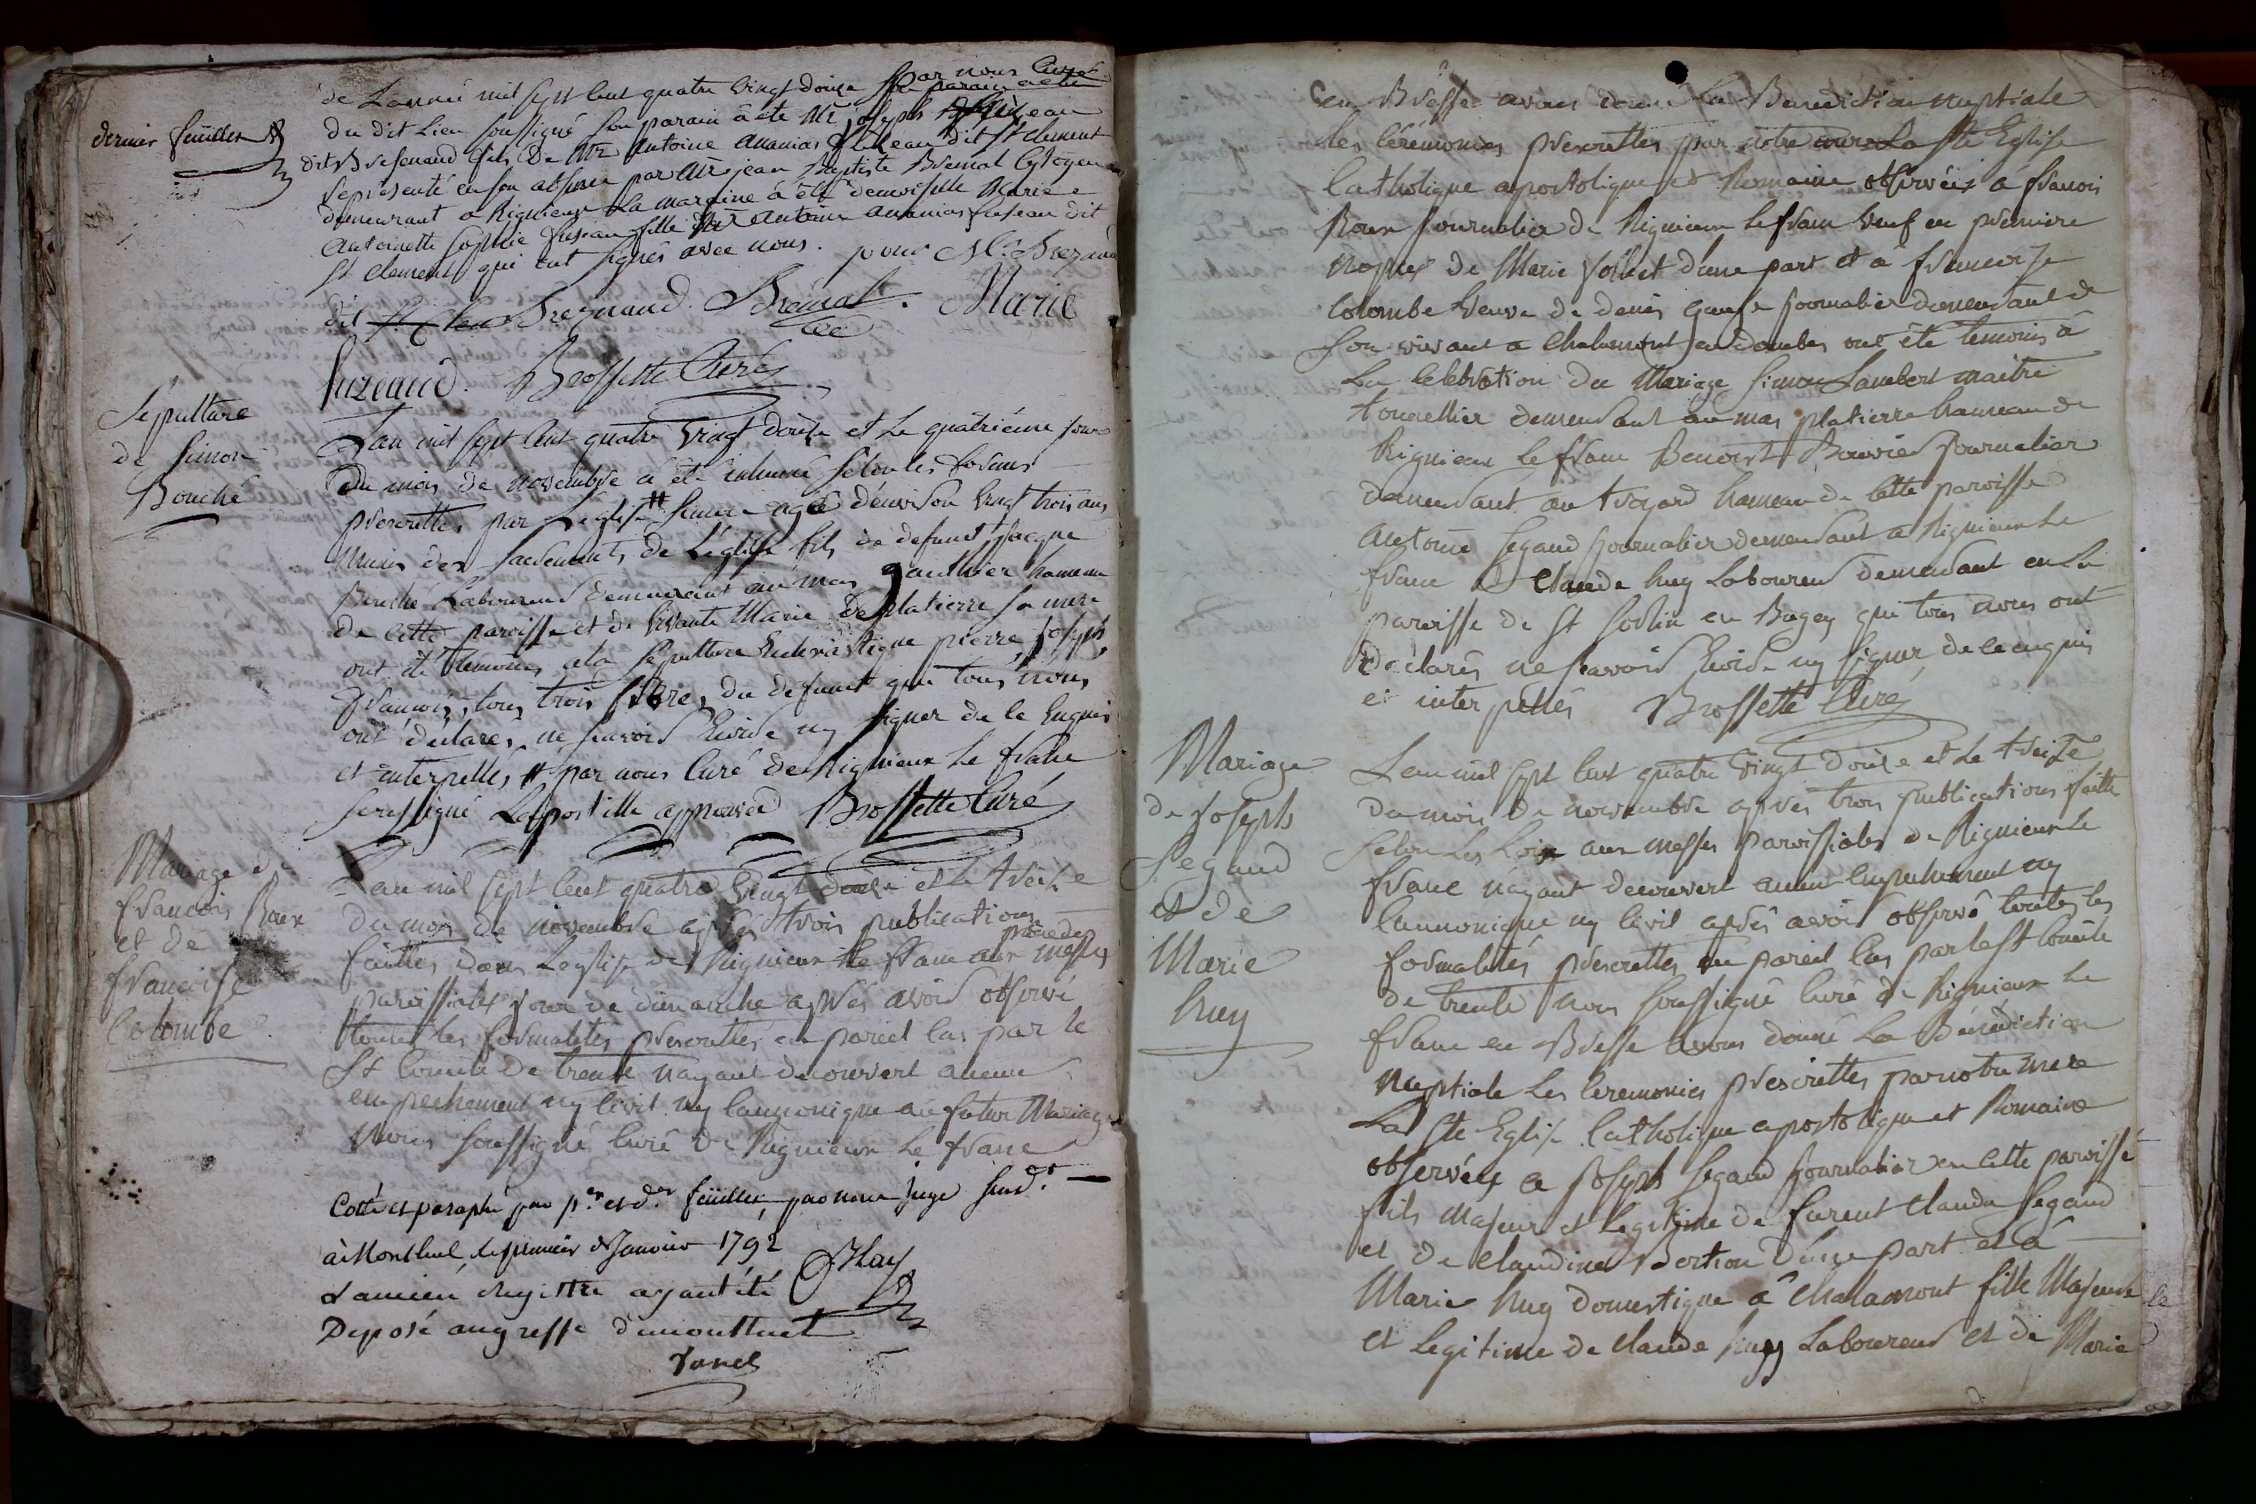 dernier feüillet
de L'année mil sept cent quatre vingt douze par nous Curé
du dit Lieu soussigné son parain â été Mr joseph
dit Bresenaud fils de Mr Antoine ananias fuseau dit St Clement
représenté en son absence par Mr jean Baptiste Bremal Cytoyen
demeurant a Rignieux La maraine â êté demoiselle Marie
Antoinette Sophie fuseau fille Mr Antoine ananias fuseau dit
St Clement qui ont signés avec nous. pour Mr
dit Breznaud. Bremal. Marie
fuzeaud. Brossette Curé
Sepulture
de Simon
Bouché
L'an mil sept cent quatre vingt douze et Le quatriéme jour
du mois de novembre â été inhumé selon les formes
prescrittes par L'eglise # Simon agé d'environ vingt trois ans
munis des sacrements de L'église fils de defunt jacque
Bouché Laboureur demeurant au mas gauthier hameau
de cette paroisse et de vivante Marie Deplatierre sa mere
ont été témoins a la sépulture Ecclesiastique pierre, joseph,
françois, tous trois freres du defunct qui tous nous
ont déclarés ne sçavoir Ecrire ny signer de ce Enquis
et interpellés # par nous Curé de Rignieux Le franc
soussigné Lapostille approuvée Brossette Curé
Mariage de
francois Roux
et de
francoise
Colombe
L'an mil sept cent quatre vingt douze et le treize
du mois de novembre après trois publications
faittes dans Leglise de Rignieux Le franc aux prone des messes
paroissiales jour de dimanche après avoir observé
toutes les formalités prescrittes en pareil cas par le
St Concile de trente n'ayant decouvert aucun
empechement ny civil ny cannonique au futur Mariage
Nous soussigné Curé de Rignieux Le franc
Cotté et paraphé par pr. et dr. feüillet, par nous juge susd.
à Montluel, le premier de Janvier 1792
L'ancien Registre ayant été
Deposé au greffe de montluel
en Bresse avons donné La Benediction nuptiale
les cérémonies prescrittes par notre mere La Ste Eglise
Catholique apostolique et Romaine observées â francois
Roux journalier de Rignieux Le franc veuf en premiere
nopces de Marie jolliet d'une part et a francoise
Colombe veuve de denis journalier demeurant de
son vivant a Chalamont en dombes ont été temoins â
La celebration du Mariage Simon Lambert maitre
tonnellier demeurant au mas platierre hameau de
Rignieux Le franc Benoist Bouvier journalier
demeurant au hameau de cette paroisse
Antoine Segaud journalier demeurant a Rignieux Le
franc & Claude huy Laboureur demeurant en La
paroisse de St Sorlin en Bugey qui tous nous ont
déclarés ne sçavoir Ecrire ny signer de ce enquis
et interpellés Brossette Curé
Mariage
de joseph
Segaud
et de
Marie
huy
L'an mil sept cent quatre vingt douze et Le treize
du mois de novembre après trois publications faitte
selon Les Loix aux messes paroissiales de Rignieux Le
franc n'ayant decouvert aucun empechement ny
Cannonique ny civil après avoir observé toutes les
formalités prescrittes en pareil cas par le St Concile
de trente Nous soussigné Curé de Rignieux Le
franc en Bresse avons donné La Bénédiction
Nuptiale Les Ceremonies prescrittes par notre mere
La Ste Eglise Catholique apostolique et Romaine
observées a joseph Segaud journalier en cette paroisse
fils Majeur et Legitime de furent Claude Segaud
et de Claudine Bertion d'une part et â
Marie huy domestique â Chalamont fille Majeure
et Legitime de Claude huy Laboureur et de Marie